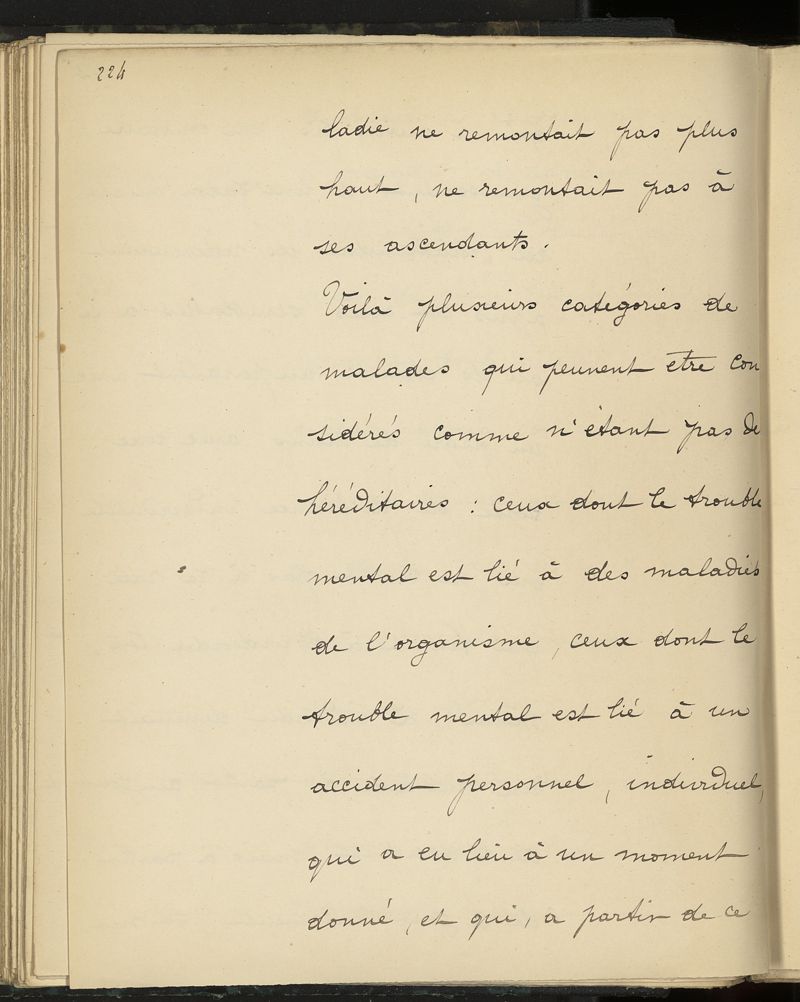 224
ladie ne remontait pas plus
haut, ne remontait pas à
ses ascendants.
Voilà plusieurs catégories de
malades qui peuvent etre con
sidérés comme n'étant pas de
héréditaires : ceux dont le trouble
mental est lié à des maladies
de l'organisme, ceux dont le
trouble mental est lié à un
accident personnel, individuel,
qui a eu lieu à un moment
donné, et qui, a partir de ce